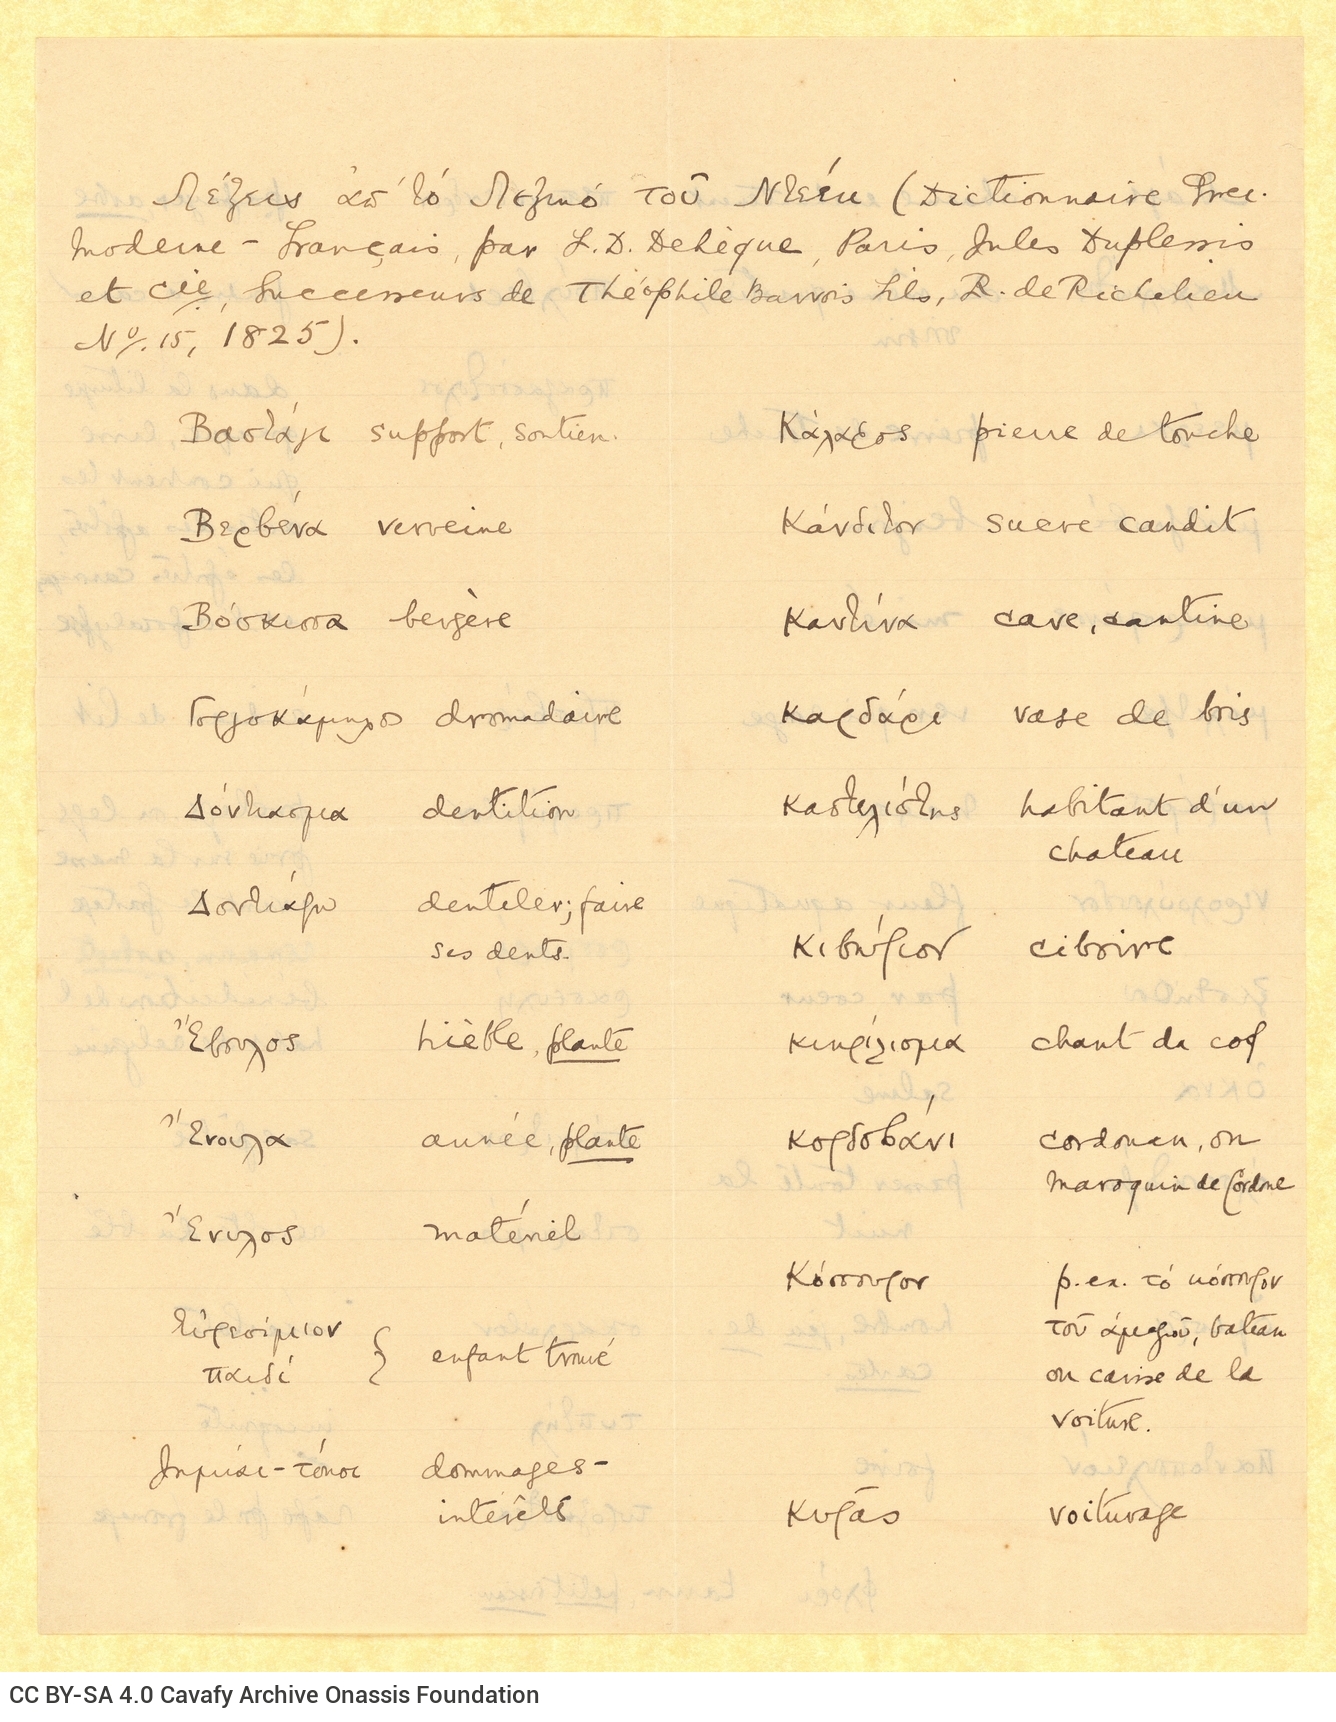 Λέξεις ἀπ' τὸ Λεξικό τοῦ Ντεέκ (Dictionnaire Grec.
moderne - français, par F.D. Dehèque, Paris, Jules Duplessis
et Cie, Successeurs de Théophile Barrois fils, R. de Richelieu
No. 15, 1825).
Βαστάγι support, soutien.
Βερβένα verveine
Βόσκισσα bergère
Γοργοκάμηλο dromadaire
Δόντιασμα dentition
Δοντιάζω denteler; faire
ses dents.
Ἔβουλος hièble, plante
Ἔνουλα aunée, plante
Ἔνυλος matériel
Εὑρεσίμιον
παιδί } enfant trouvé
Ζημίαι-τόκοι dommages-
intérêts
Κάλαξος pierre de touche
Κάνδιτον sucre candit
Καντίνα cave, cantine
Καρδάρι vase de bois
Καστελιώτης habitant d'un
chateau
Κιβώριον ciboire
Κικρίλισμα chant du coq
Κορδοβάνι cordouan, ou
maroquin de Cordoue
Κόσσυφον p.ex. τό κόσσυφον
τοῦ ἁμαξιοῦ, bateau
ou caisse de la
voiture.
Κυρᾶς voiturage
CC BY-SA 4.0 Cavafy Archive Onassis Foundation